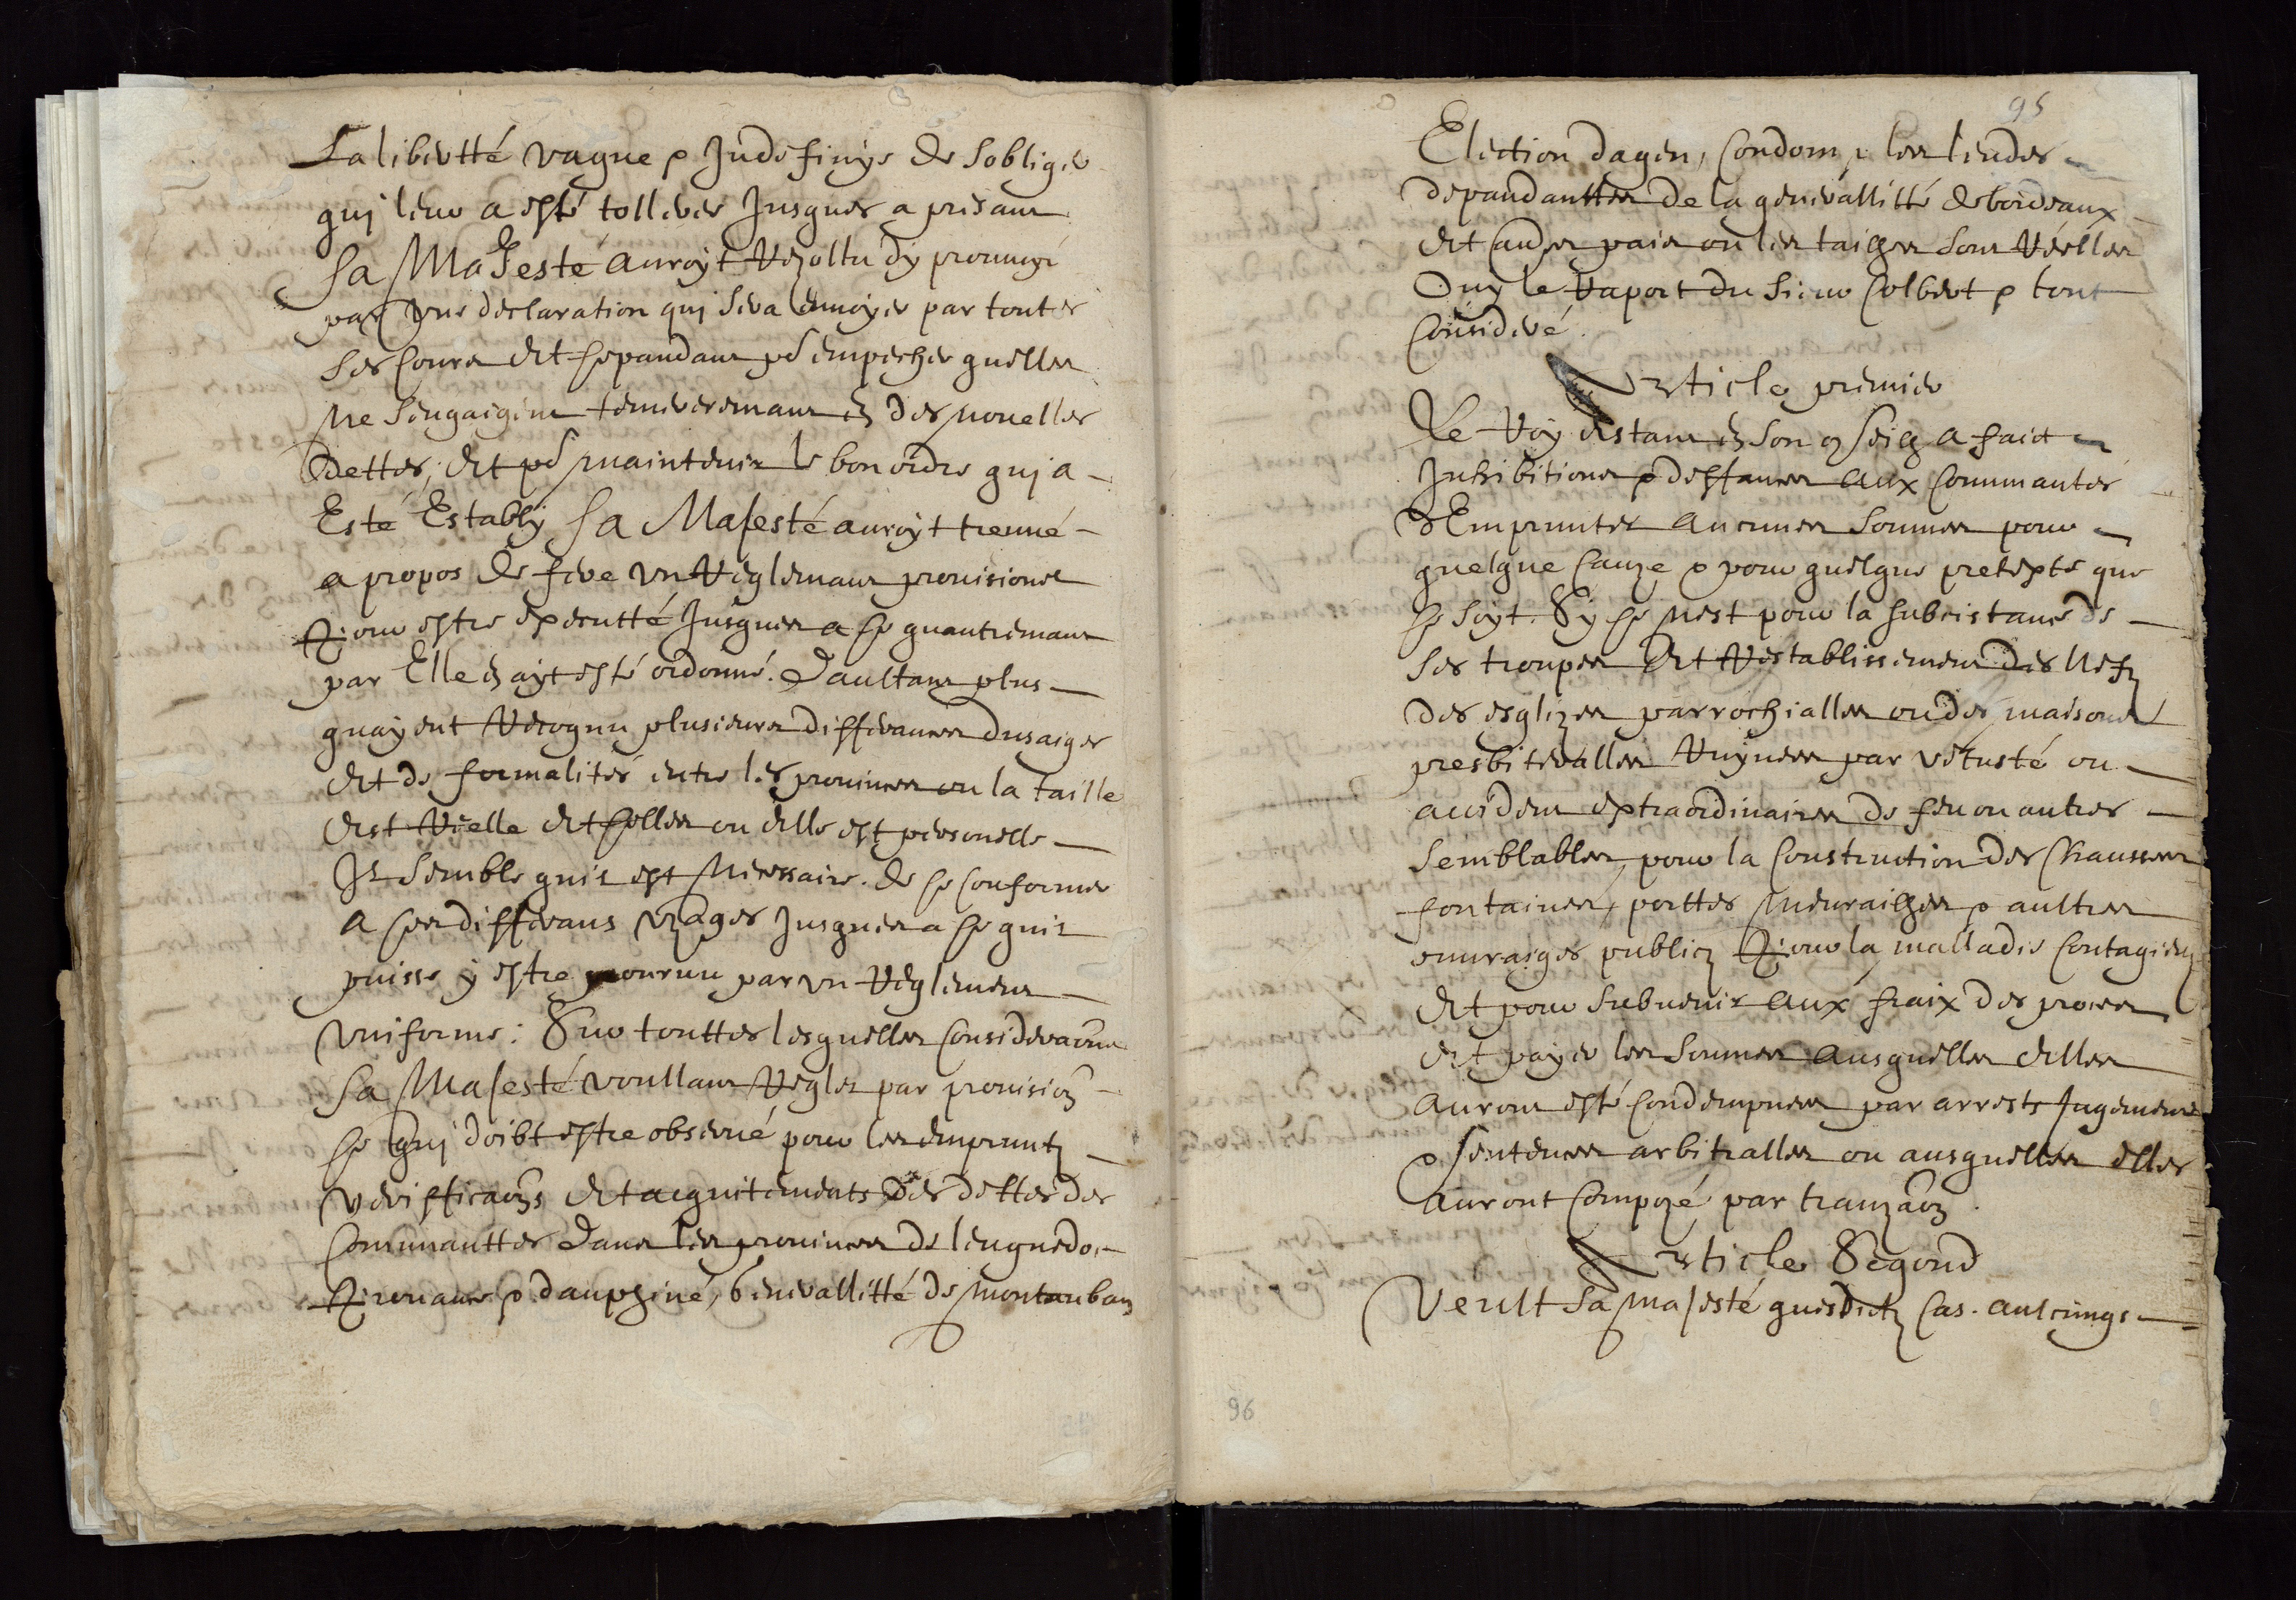 La libertté vague & Indefinye de sobliger
quj leur a esté tolleree Jusques a presant
sa MaJesté auroyt rezollu dy prouuoir
par vne declaration quj sera enuoyee par toutes
ses Cours Et cepandant po{r} empecher quelles
ne sengaigent temerereman en des nouelles
dettes, Et po{r} maintenir le bon ordre quj a
Esté Establÿ sa Maiesté auroyt treuué
a propos de fere vn Reglemant prouisionel
Pour estre executté Jusques a ce quautremant
par Elle en ayt esté ordonné. Daultant plus
quayent recognu plusieurs differances dusaiges
Et de formalités entre les prouinces ou la taille
Est réelle Et celles ou elle est personelle
Il semble quil est necessaire de se conformer
a ces differans vzages Jusques a ce quil
puisse ÿ estre pourueu par vn reglement
vniforme: Sur touttes lesquelles considera{on}s
sa Maiesté voullant regler par prouision
ce quj doibt estre obserué pour les emprunt{z}
veriffica{on}s Et acquitements des dettes des
communauttes dans les prouinces de lenguedoc
Prouance & dauphiné, Generallitté de Montauban
95
Election dagen, Condom & les landes
depandanttes de la generallitté de bordeaux
Et autres pais ou les tailhes sont réelles
Ouy le raport du sieur Colbert & tout
consideré.
Article premier
Le Roy Estant en son con{seilh} a faict
Inhibitions & deffances aux Communautés
dEmprunter aucunes sommes pour
quelque cauze & pour quelque pretexte que
ce soyt. Sy ce nest pour la subcistance de
ses troupes Et restablissement des Nefz
des esglizes parrochialles ou des maisons
presbiteralles ruynees par vétusté ou
accident extraordinaires de feu ou autres
semblables, pour la Construction des Chaussees
fontaines, porttes meurailhes & aultres
ouuraiges publicz Pour la malladie contagieuze
Et pour subuenir aux fraix des proces
Et payer les sommes ausquelles elles
auront esté condempnees par arrests Jugements
& sentences arbitralles ou ausquelles elles
auront compozé par tranza{on}
Article Segond
Veult sa maiesté quesdictz cas. aulcungs
96